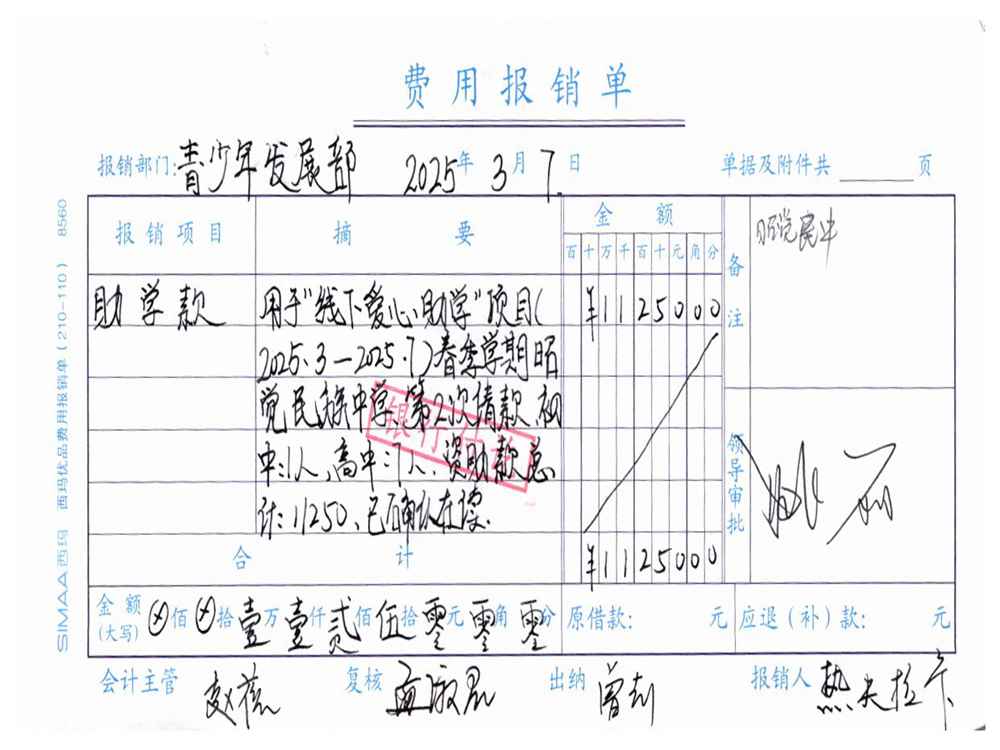 费用报销单
报销部门:青少年发展部 2025年3月7日 单据及附件共 页
报销项目 摘要 金额 备注 昭觉民中
百十万千百十元角分
助学款 用于“线下爱心助学”项目( ¥1125000
2025.3—2025.7)春季学期昭
觉民族中学第2次请款,初
中:1人,高中:7人,资助款总
计:11250,已确认在读.
银行付讫
领导审批
合计 ¥1125000
金额(大写) ⊗佰⊗拾壹万壹仟贰佰伍拾零元零角零分 原借款: 元 应退(补)款: 元
会计主管 复核 出纳 报销人 热夫拉卡
SIMAA西玛 西玛优品费用报销单(210-110) 8560